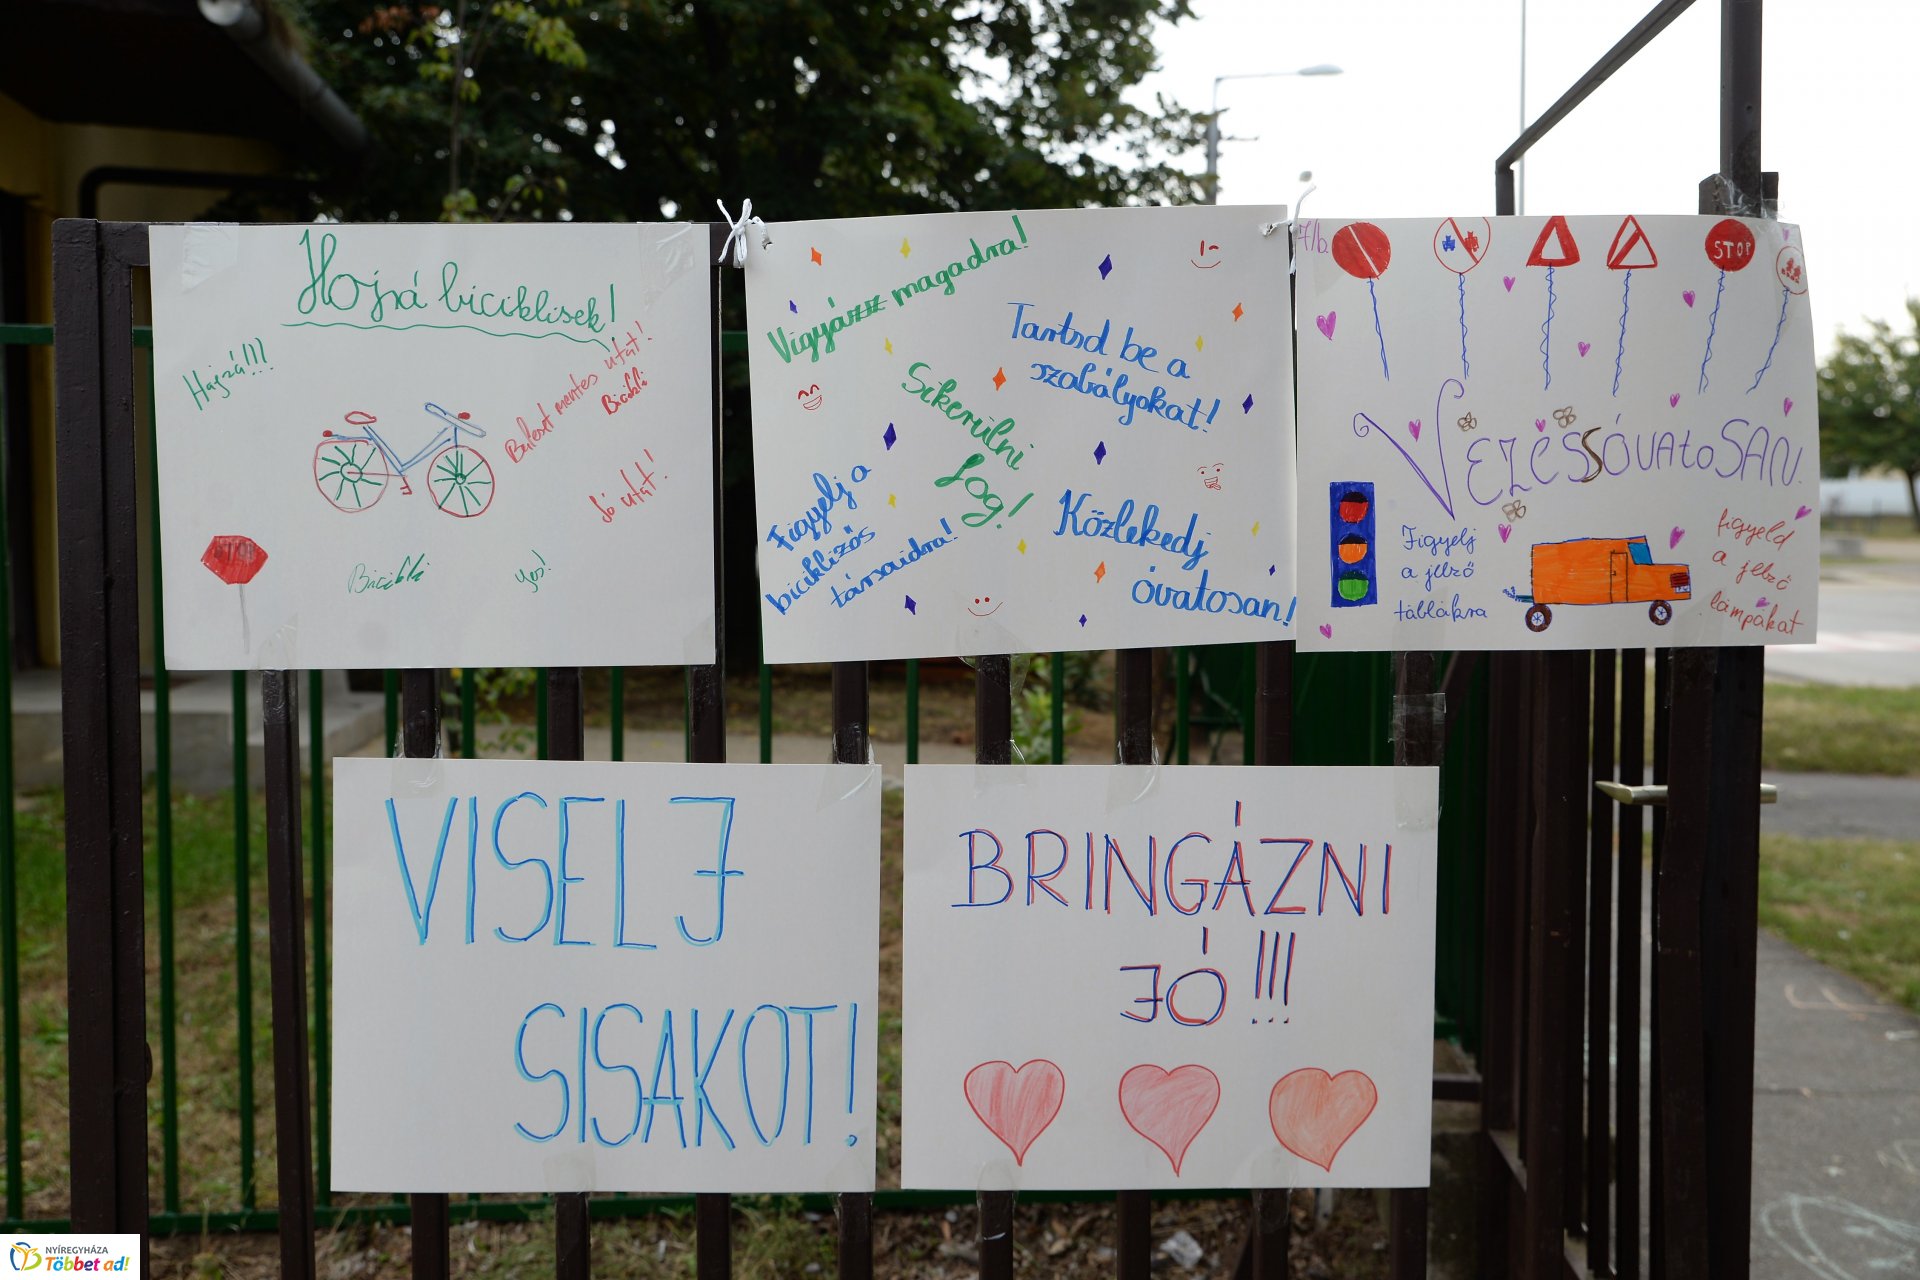 Hojrá biciklisek!
Hajrá!!!
Baleset mentes utat!
Bicikli
Jó utat!
STOP
Bicikli
Yes!
Vigyázz magadra!
Tartsd be a
szabályokat!
Sikerülni
fog!
Figyelj a
biciklizős
társaidra!
Közlekedj
óvatosan!
7/b.
STOP
VEZESSÓVATOSAN!
Figyelj
a jelző
táblákra
figyeld
a jelző
lámpákat
VISELJ
SISAKOT!
BRINGÁZNI
JÓ!!!
NYÍREGYHÁZA
Többet ad!